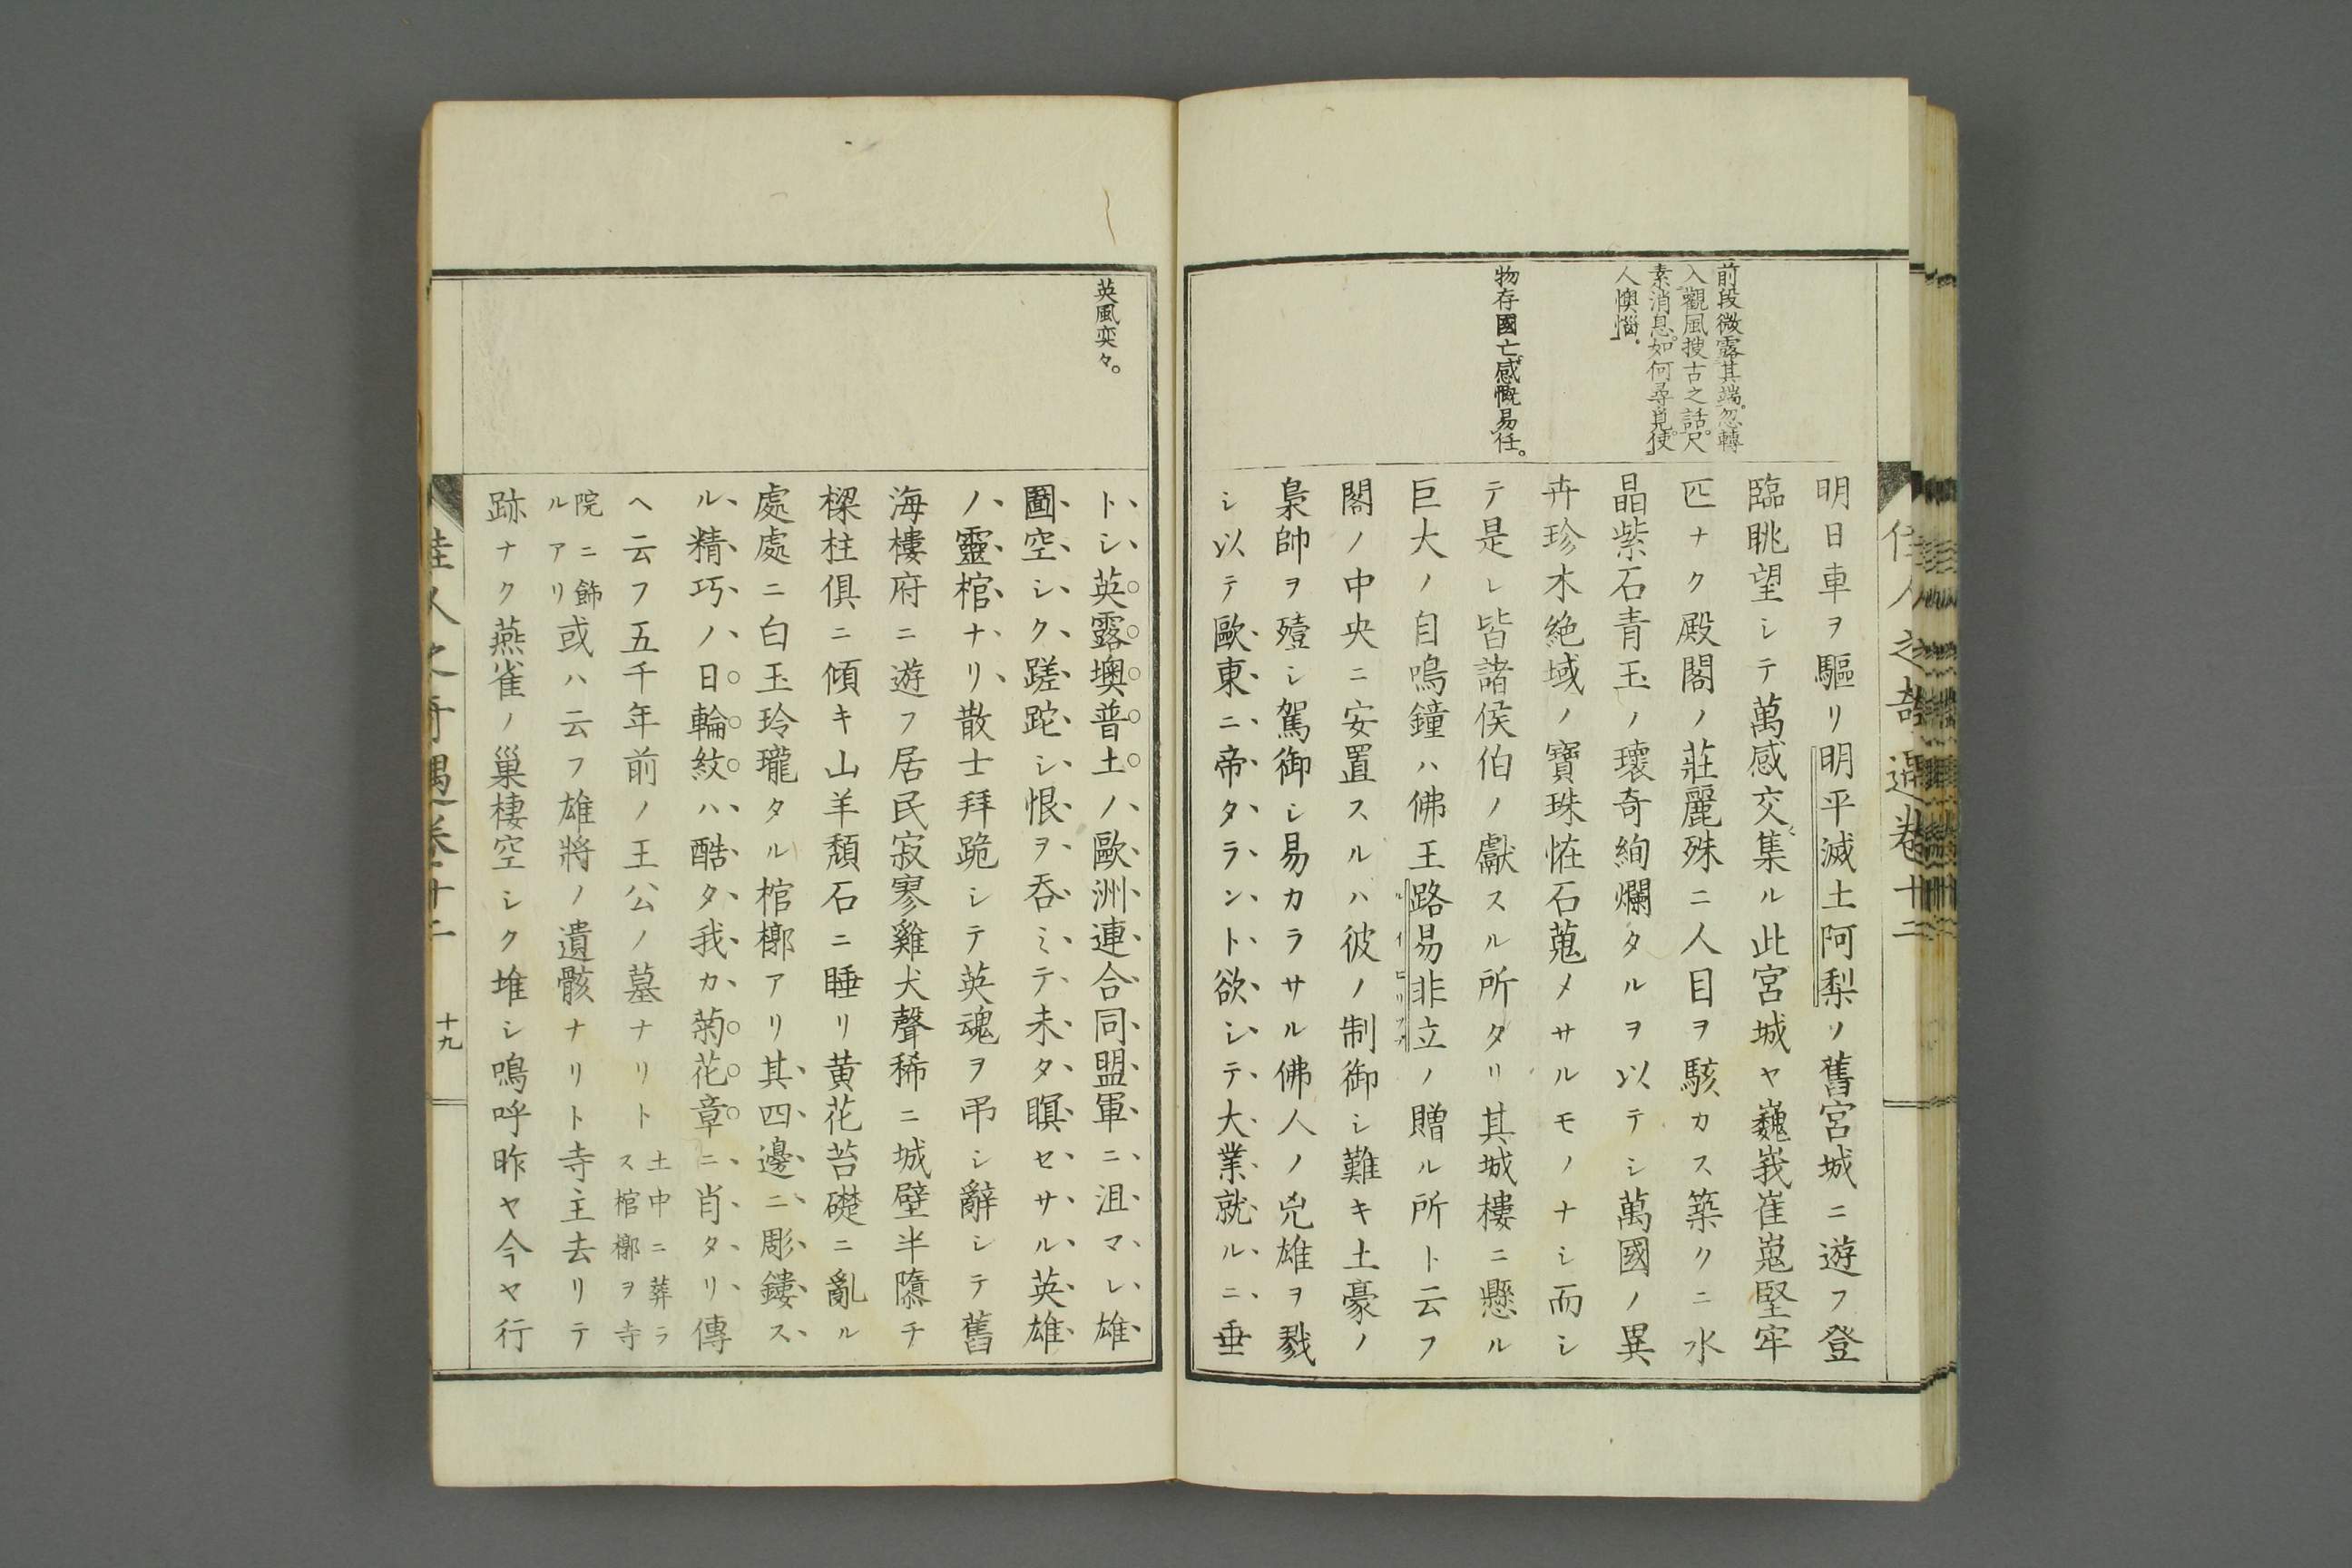 前段微露其端。忽轉
入觀風搜古之話。尺
素消息。如何尋覓。使
人懊惱。
物存國亡。感慨易任。
明日車ヲ驅リ明平滅土阿梨ノ舊宮城ニ遊フ登
臨眺望シテ萬感交〻集ル此宮城ヤ巍峩崔嵬堅牢
匹ナク殿閣ノ莊麗殊ニ人目ヲ駭カス築クニ水
晶紫石靑玉ノ瓌奇絢爛タルヲ以テシ萬國ノ異
卉珍木絶域ノ寶珠恠石蒐メサルモノナシ而シ
テ是レ皆諸侯伯ノ獻スル所タリ其城樓ニ懸ル
巨大ノ自鳴鐘ハ佛王路易非立ノ贈ル所ト云フ
閣ノ中央ニ安置スルハ彼ノ制御シ難キ土豪ノ
梟帥ヲ殪シ駕御シ易カラサル佛人ノ兇雄ヲ戮
シ以テ歐東ニ帝タラント欲シテ大業就ルニ垂
佳人之奇遇卷十二
英風奕々。
トシ英露墺普土ノ歐洲連合同盟軍ニ沮マレ雄
圖空シク蹉跎シ恨ヲ呑ミテ未タ瞑セサル英雄
ノ靈棺ナリ散士拜跪シテ英魂ヲ弔シ辭シテ舊
海樓府ニ遊フ居民寂寥雞犬聲稀ニ城壁半隳チ
樑柱俱ニ傾キ山羊頽石ニ睡リ黄花苔礎ニ亂ル
處處ニ白玉玲瓏タル棺槨アリ其四邊ニ彫鏤ス
ル精巧ノ日輪紋ハ酷タ我カ菊花章ニ肖タリ傳
ヘ云フ五千年前ノ王公ノ墓ナリト土中ニ葬ラス棺槨ヲ寺
院ニ飾ルアリ或ハ云フ雄將ノ遺骸ナリト寺主去リテ
跡ナク燕雀ノ巢棲空シク堆シ嗚呼昨ヤ今ヤ行
佳人之奇遇卷十二
十九